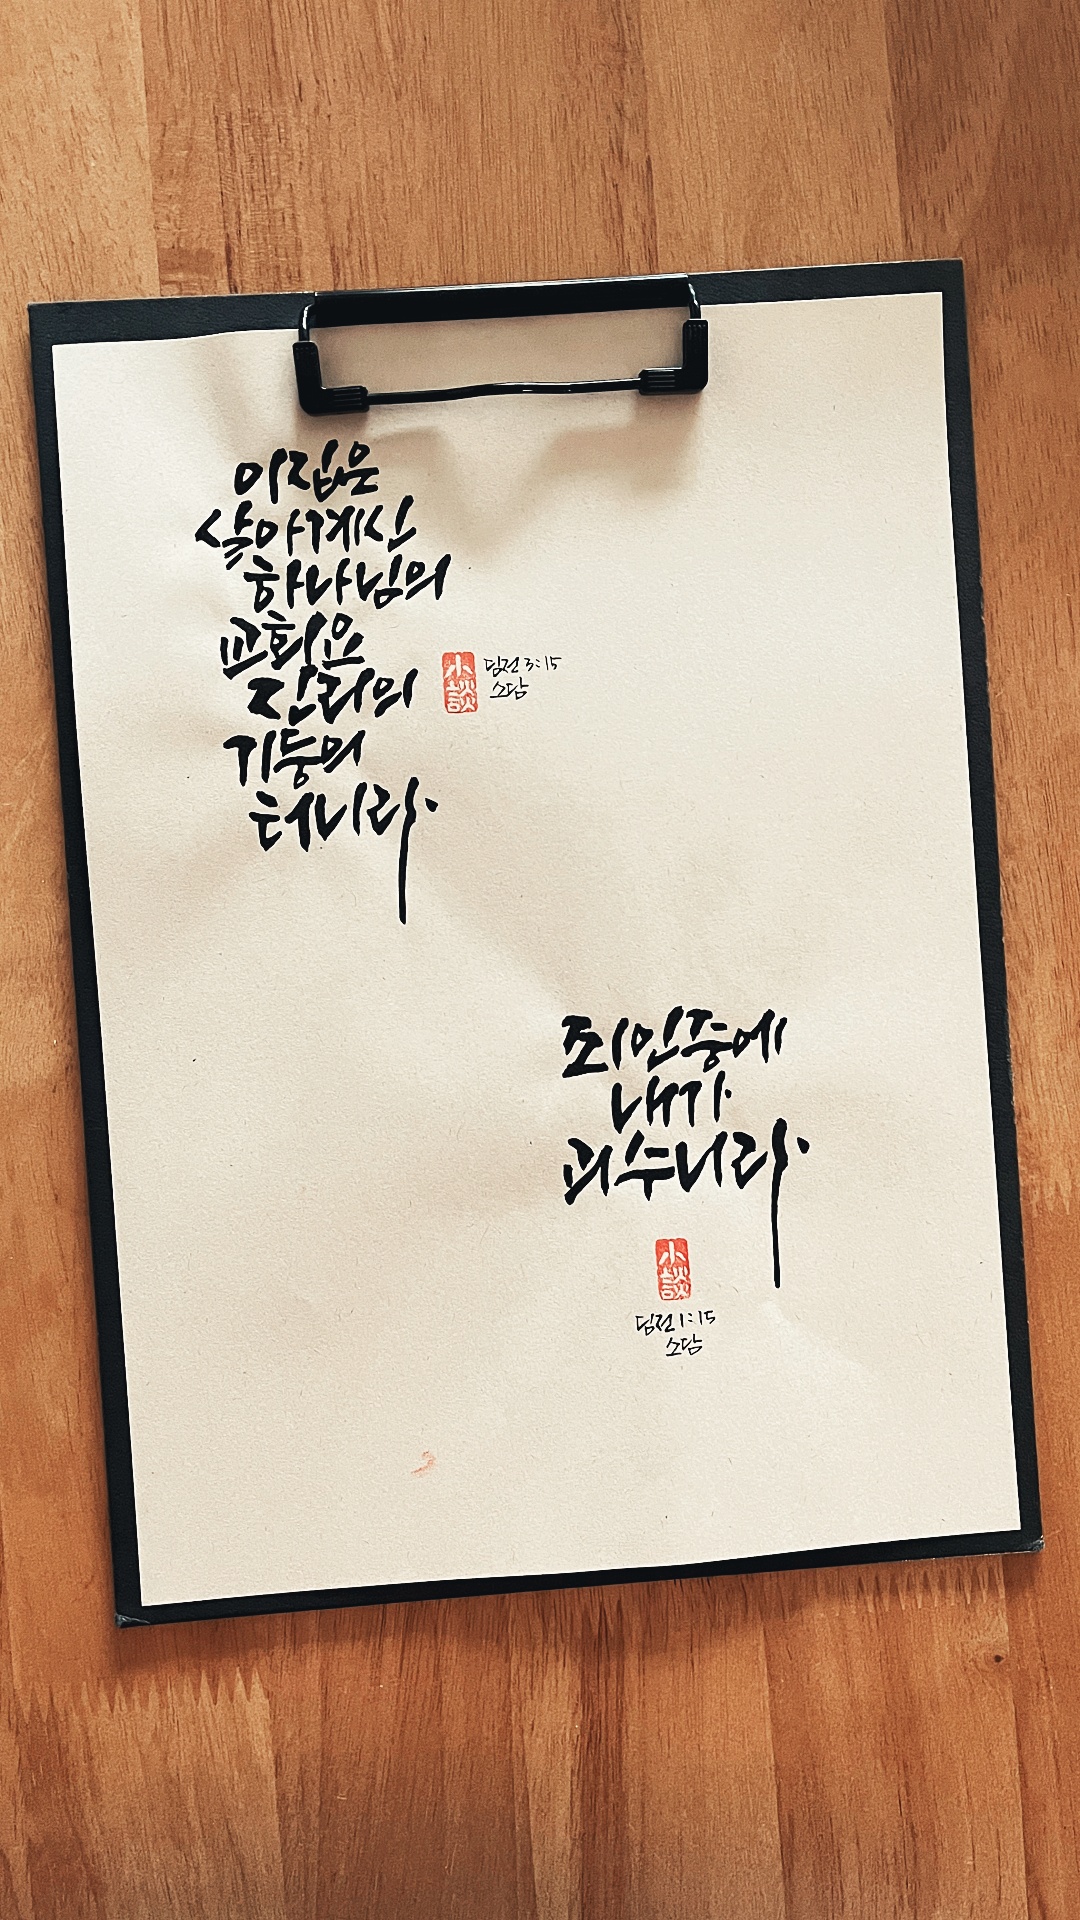 이집은
살아계신
하나님의
교회요
진리의
기둥의
터니라.
小談
딤전 3:15
소담
죄인중에
내가
괴수니라.
小談
딤전 1:15
소담